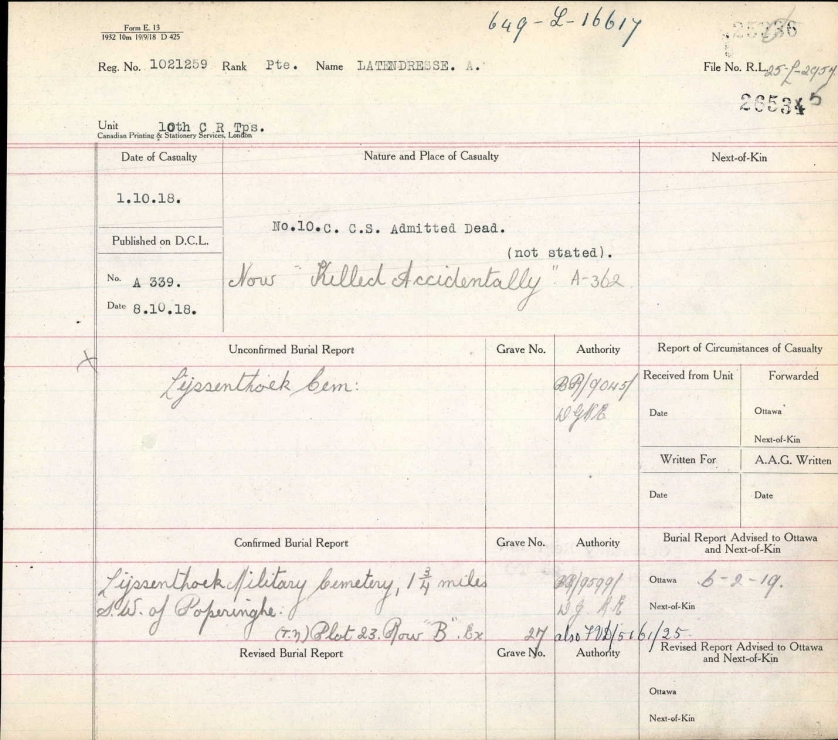 Form E. 13
1932 10m 19/9/18 D 425
649-L-16617
Reg. No. 1021259 Rank Pte. Name LATENDRESSE. A.
File No. R.L. 25-L-2957
26534 5
Unit 10th C R Tps.
Canadian Printing & Stationery Services, London
Date of Casualty
Nature and Place of Casualty
Next-of-Kin
1.10.18.
No.10.C. C.S. Admitted Dead.
(not stated).
Published on D.C.L.
No. A 339.
Now "Killed Accidentally" A-362
Date 8.10.18.
Unconfirmed Burial Report
Grave No.
Authority
Report of Circumstances of Casualty
Lijssenthoek Cem:
BR/9045/
Received from Unit
Forwarded
Date
Ottawa
Next-of-Kin
Written For
A.A.G. Written
Date
Date
Confirmed Burial Report
Grave No.
Authority
Burial Report Advised to Ottawa
and Next-of-Kin
Lijssenthoek Military Cemetery, 1 3/4 miles
BR/9599/
Ottawa 6-2-19.
S.W. of Poperinghe.
Next-of-Kin
(T.N) Plot 23. Row "B". Ex 27 also
Revised Burial Report
Grave No.
Authority
Revised Report Advised to Ottawa
and Next-of-Kin
Ottawa
Next-of-Kin